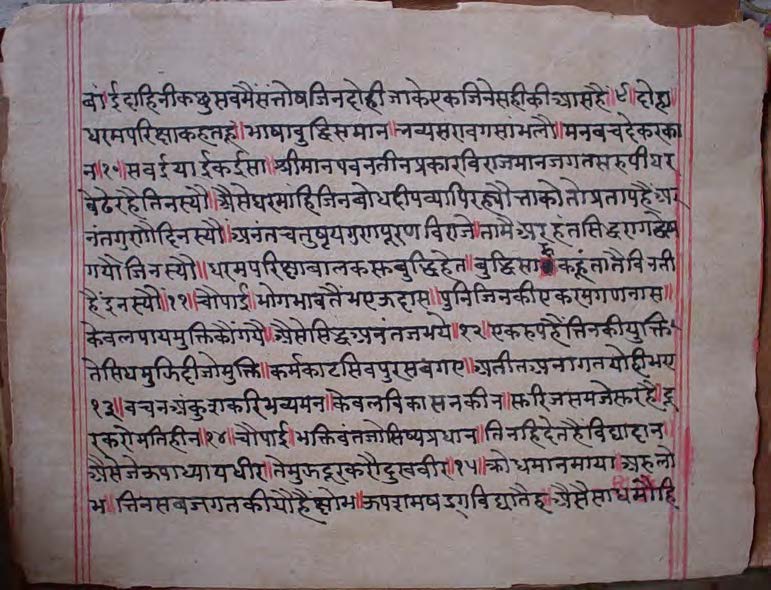 बांईदाहिनीकछुसबमैसंतोषजिनदोहीजाकेएकजिनेसहीकीआसहै॥९॥दोहा॥
धरमपरिक्षाकहतहूं॥भाषाबुद्धिसमान॥नव्यसरावगसांभलौ॥मनवचदेकरका
न॥१०॥सवईयाईकईसा॥श्रीमानपवनतीनप्रकारविराजमानजगतसरुपीघर
बेढेरहैतिनस्यौ॥औसेघरमांहिजिनबोधदीपव्यापिरह्यौताकोतोप्रतापहैअ
नंतगुणोदिनस्यौ॥अनंतचतुष्टयगुणपूरणविराजे॥तामैअरहंतसिद्धरागद्वेष
गयौजिनस्यौ॥धरमपरिक्षाबालकसुबुद्धिहेत॥बुद्धिसारूकहूंतातैविनती
हैंइनस्यौ॥११॥चौपाई॥भोगभावतैंभएउदास॥पुनिजिनकीएकरमगणनास॥
केवलपायमुक्तिकौंगयै॥औसेसिद्धअनंतजभये॥१२॥एकरुपहैंतिनकीयुक्ति॥
तेसिधमुझिदीजोमुक्ति॥कर्मकाटसिवपुरसबगए॥अतीतअनागतयोहीभए
१३॥वचनअंकुशकरिभव्यमन॥केवलविकासनकीन॥सरिजसमजेसरहै॥दू
रकरोमतिहीन॥१४॥चौपाई॥भक्तिवंतजोसिष्यप्रधान॥तिनहिदेतहैविद्यादान
औसेजेउपाध्यायधीर॥तेमुझदूरकरौदुखवीर॥१५॥क्रोधमानमायाअरुलो
भ॥तिनसबजगतकीयौहैंक्षोभ॥उपशमषड्गविद्यातैह॥औसैसाधमौहि